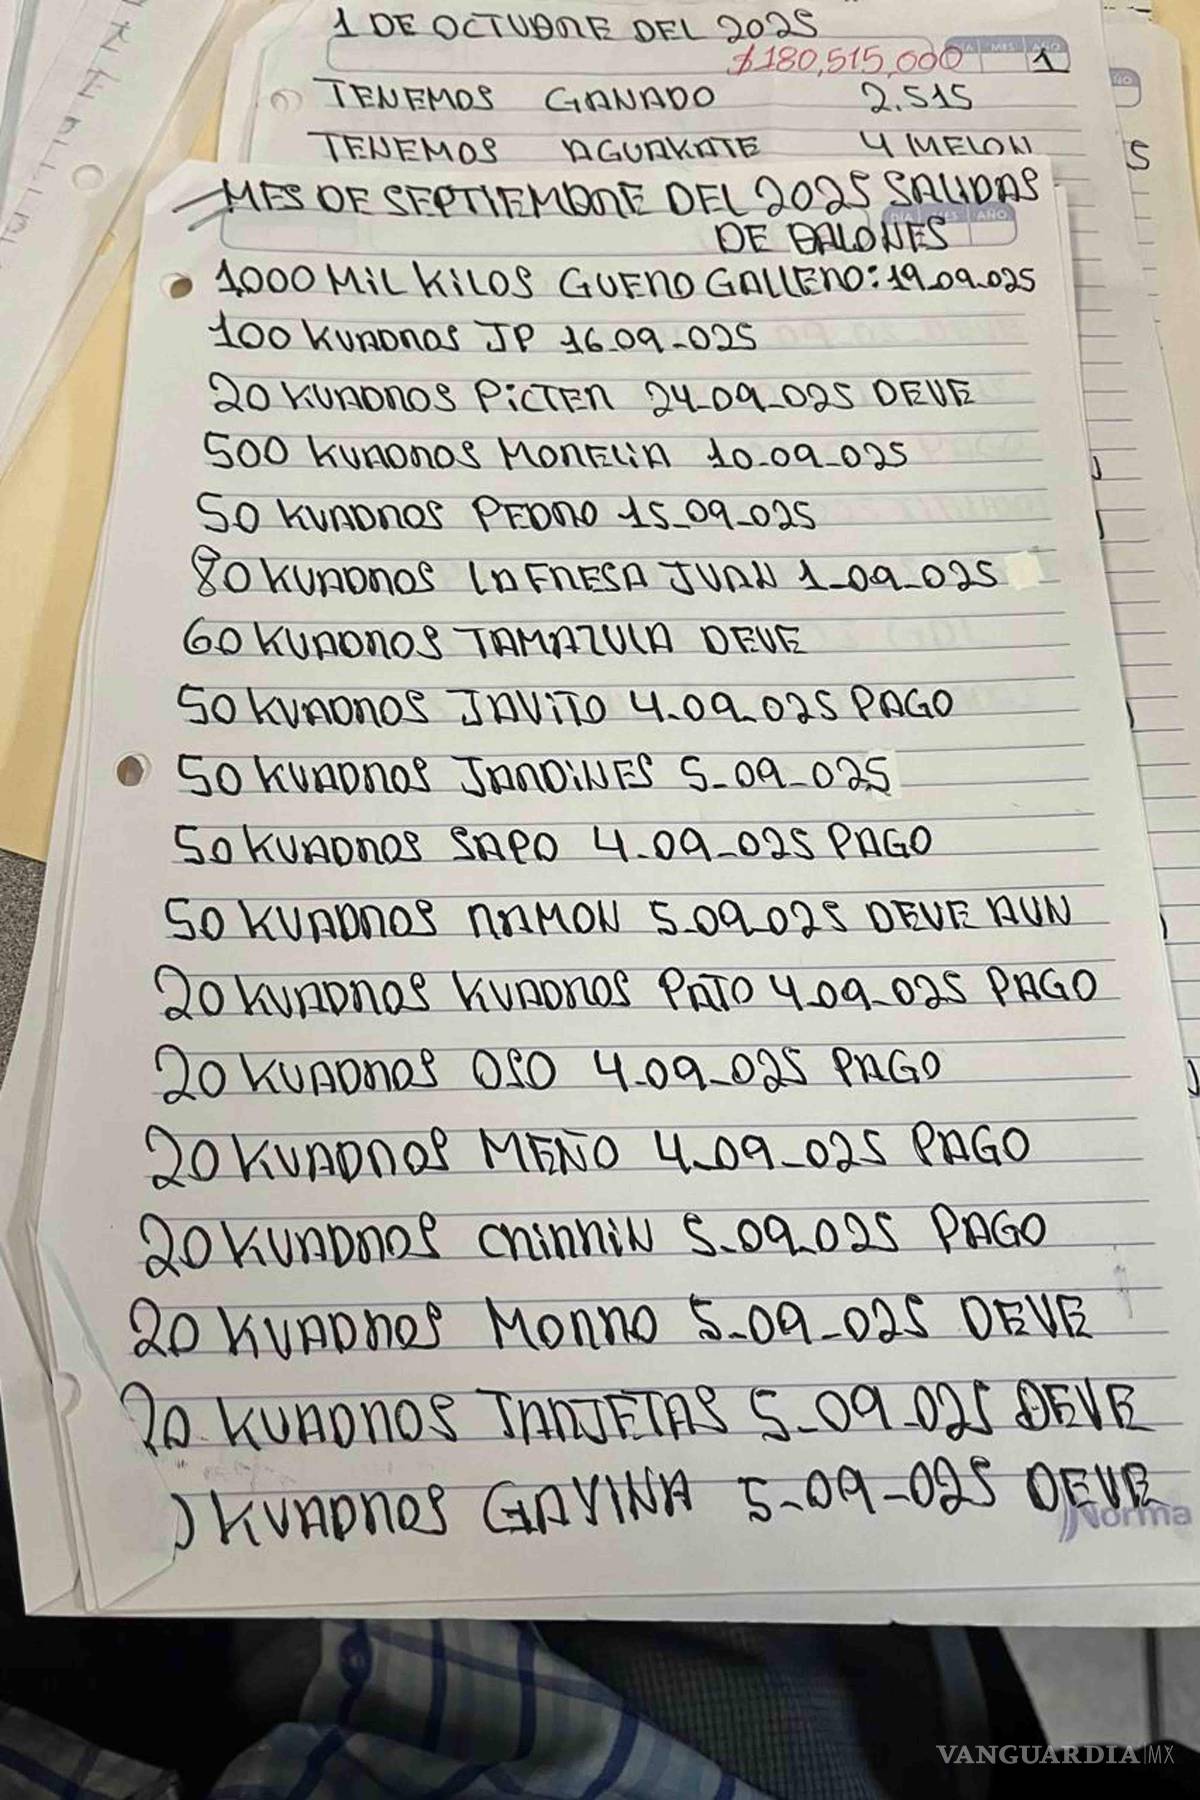 1 DE OCTUBRE DEL 2025
$180,515,000
DIA MES AÑO
1
TENEMOS GANADO 2.515
TENEMOS AGUAKATE 4 MELON
MES DE SEPTIEMBRE DEL 2025 SALIDAS
DIA MES AÑO
DE BALONES
1,000 MIL KILOS GUERO GALLERO: 19-09-025
100 KUADROS JP 16-09-025
20 KUADROS PICTER 24-09-025 DEVE
500 KUADROS MORELIA 10-09-025
50 KUADROS PEDRO 15-09-025
80 KUADROS LA FRESA JUAN 1-09-025
60 KUADROS TAMAZULA DEVE
50 KUADROS JAVITO 4-09-025 PAGO
50 KUADROS JARDINES 5-09-025
50 KUADROS SAPO 4-09-025 PAGO
50 KUADROS RAMON 5-09-025 DEVE AUN
20 KUADROS KUADROS PATO 4-09-025 PAGO
20 KUADROS OSO 4-09-025 PAGO
20 KUADROS MEÑO 4-09-025 PAGO
20 KUADROS CHIRRIN 5-09-025 PAGO
20 KUADROS MORRO 5-09-025 DEVE
20 KUADROS TARJETAS 5-09-025 DEVE
KUADROS GAVINA 5-09-025 DEVE
Norma
VANGUARDIA|MX